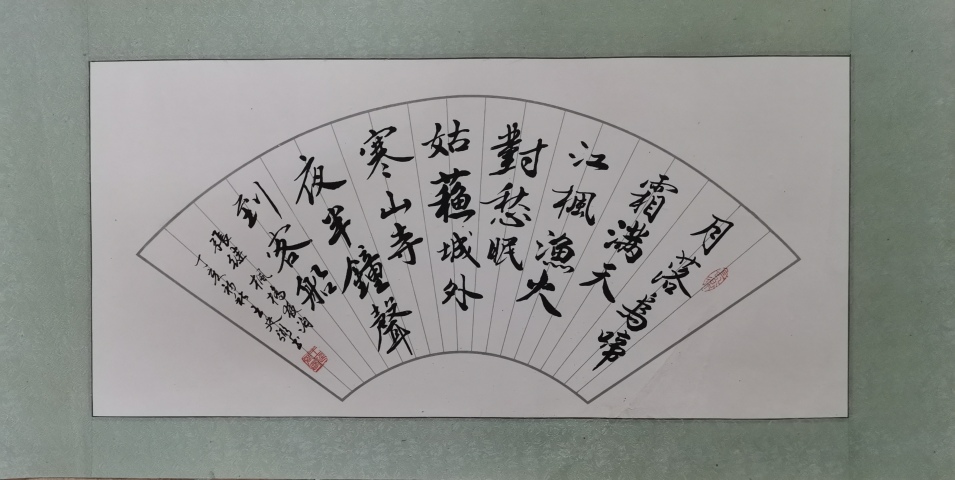 月落烏啼
霜滿天
江楓漁火
對愁眠
姑蘓城外
寒山寺
夜半鐘聲
到客船
張継楓橋夜泊
丁亥初秋